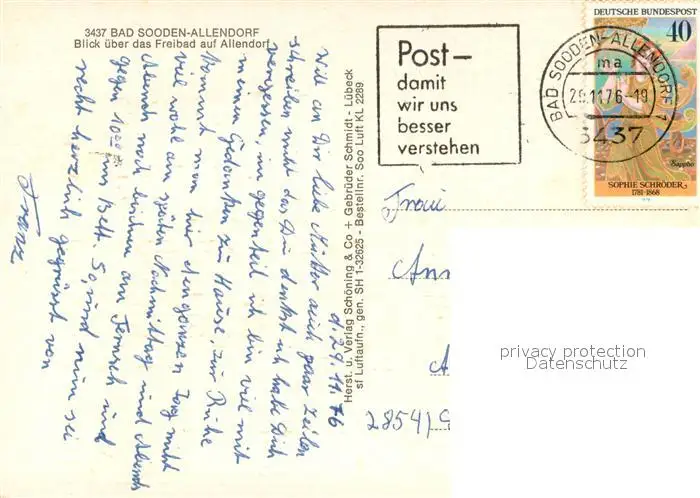 3437 BAD SOODEN-ALLENDORF
Blick über das Freibad auf Allendorf
d. 29.11.76
Will an Dir liebe Mutter auch paar Zeilen
schreiben nicht das Du denkst ich habe Dich
vergessen, im gegenteil ich bin viel mit
meinen Gedanken zu Hause, zur Ruhe
kommt man hier den ganzen Tag nicht
viel wohl am späten Nachmittag und Abends
Abends noch bisschen am Fernseh und
gegen 10 ins Bett. So, und nun sei
recht herzlich gegrüsst von
Franz
Herst. u. Verlag Schöning & Co + Gebrüder Schmidt - Lübeck
sf Luftaufn., gen. SH 1-32625 - Bestellnr. Soo Luft KL 2289
Post-
damit
wir uns
besser
verstehen
BAD SOODEN-ALLENDORF 1
ma
29.11.76-19
3437
DEUTSCHE BUNDESPOST
40
Sappho
SOPHIE SCHRÖDER
1781-1868
Frau
Ann
A
2854)
privacy protection
Datenschutz